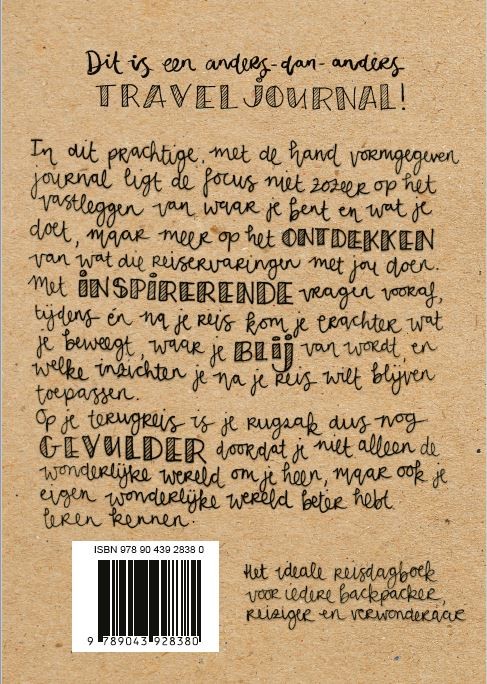 Dit is een anders-dan-anders
TRAVELJOURNAL!
In dit prachtige, met de hand vormgegeven
journal ligt de focus niet zozeer op het
vastleggen van waar je bent en wat je
doet, maar meer op het ONTDEKKEN
van wat die reiservaringen met jou doen.
Met INSPIRERENDE vragen vooraf,
tijdens én na je reis kom je erachter wat
je beweegt, waar je BLIJ van wordt, en
welke inzichten je na je reis wilt blijven
toepassen.
Op je terugreis is je rugzak dus nog
GEVULDER doordat je niet alleen de
wonderlijke wereld om je heen, maar ook je
eigen wonderlijke wereld beter hebt
leren kennen.
ISBN 978 90 439 2838 0
9 789043 928380
Het ideale reisdagboek
voor iedere backpacker,
reiziger en verwonderaar